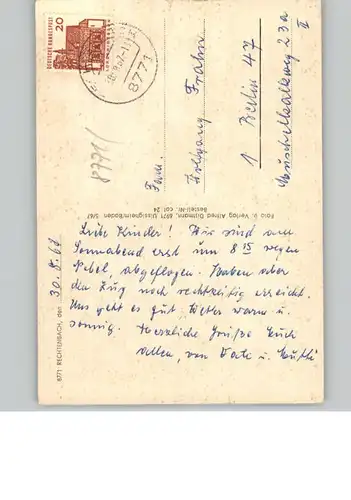 20
DEUTSCHE BUNDESPOST
8771
8771/
Fam.
Wolfgang Frahm
1 Berlin 47
Muschelkalkweg 23a
II
Foto u. Verlag Alfred Gillmann, 8771
Bestell-Nr. col 24
5/67
8771 RECHTENBACH, den 30.8.67
Liebe Kinder! Wir sind am
Sonnabend erst um 8 15 wegen
Nebel, abgeflogen. Haben aber
den Zug noch rechtzeitig erreicht.
Uns geht es gut. Wetter warm u.
sonnig. Herzliche Grüße Euch
allen, von Vati u. Mutti